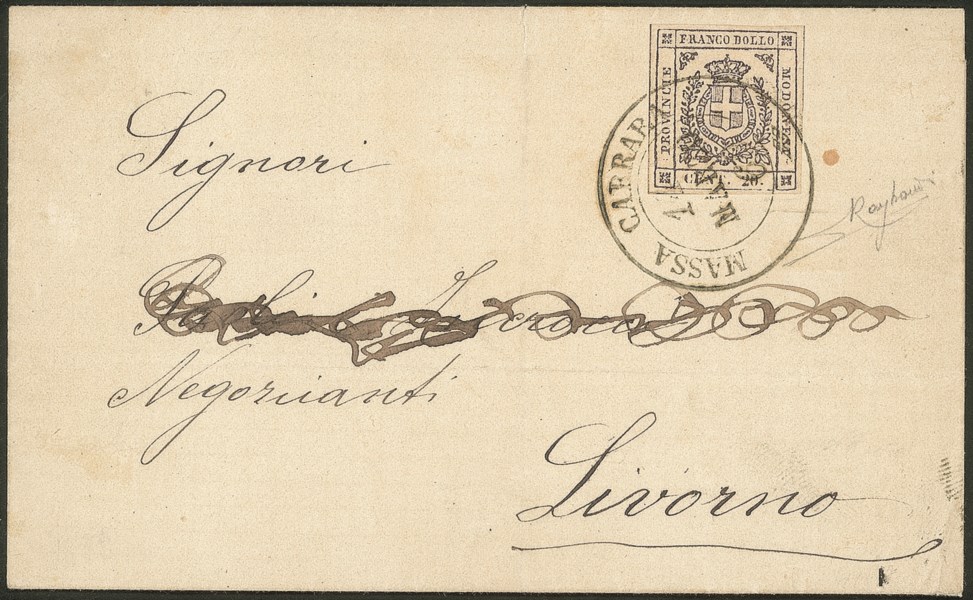 FRANCO BOLLO
PROVINCIE
MODONESI
CENT. 20.
MASSA CARRARA
Signori
Negozianti
Livorno